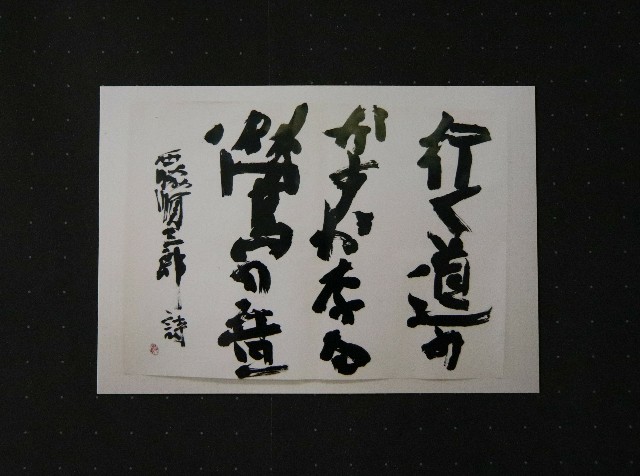 行く道の
かすかなる
鶯の音
西脇順三郎 詩